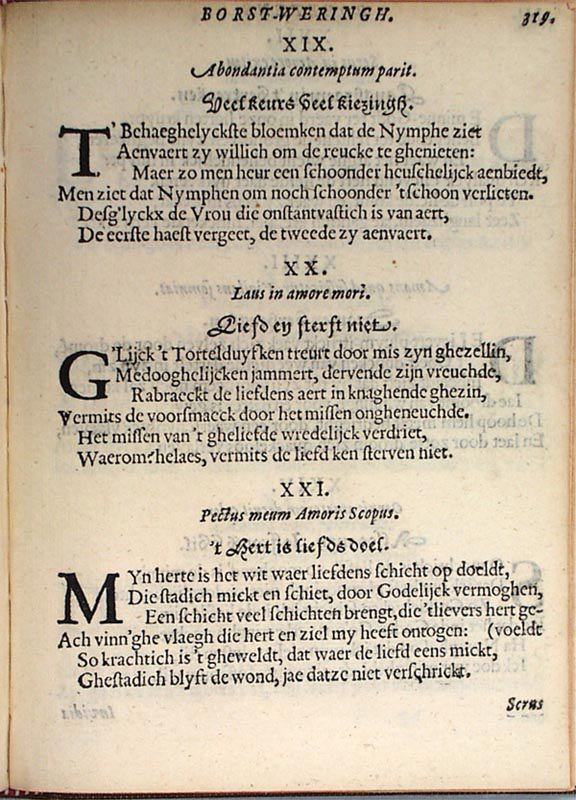 BORST-WERINGH. 319.
XIX.
Abondantia contemptum parit.
Veel keurs veel kiezingh.
T'Behaeghelyckste bloemken dat de Nymphe ziet
Aenvaert zy willich om de reucke te ghenieten:
Maer zo men heur een schoonder heuschelijck aenbiedt,
Men ziet dat Nymphen om noch schoonder 't schoon verlieten.
Desg'lyckx de Vrou die onstantvastich is van aert,
De eerste haest vergeet, de tweede zy aenvaert.
XX.
Laus in amore mori.
Liefd en sterft niet.
G'Lijck 't Tortelduyfken treurt door mis zyn ghezellin,
Medooghelijcken jammert, dervende zijn vreuchde,
Rabraeckt de liefdens aert in knaghende ghezin,
Vermits de voorsmaeck door het missen ongheneuchde.
Het missen van 't gheliefde wredelijck verdriet,
Waerom? helaes, vermits de liefd ken sterven niet.
XXI.
Pectus meum Amoris Scopus.
't Hert is liefds doel.
MYn herte is het wit waer liefdens schicht op doeldt,
Die stadich mickt en schiet, door Godelijck vermoghen,
Een schicht veel schichten brengt, die 'tlievers hert ge-
Ach vinn'ghe vlaegh die hert en ziel my heeft ontogen: (voeldt
So krachtich is 't gheweldt, dat waer de liefd eens mickt,
Ghestadich blyft de wond, jae datze niet verschrickt.
Serus